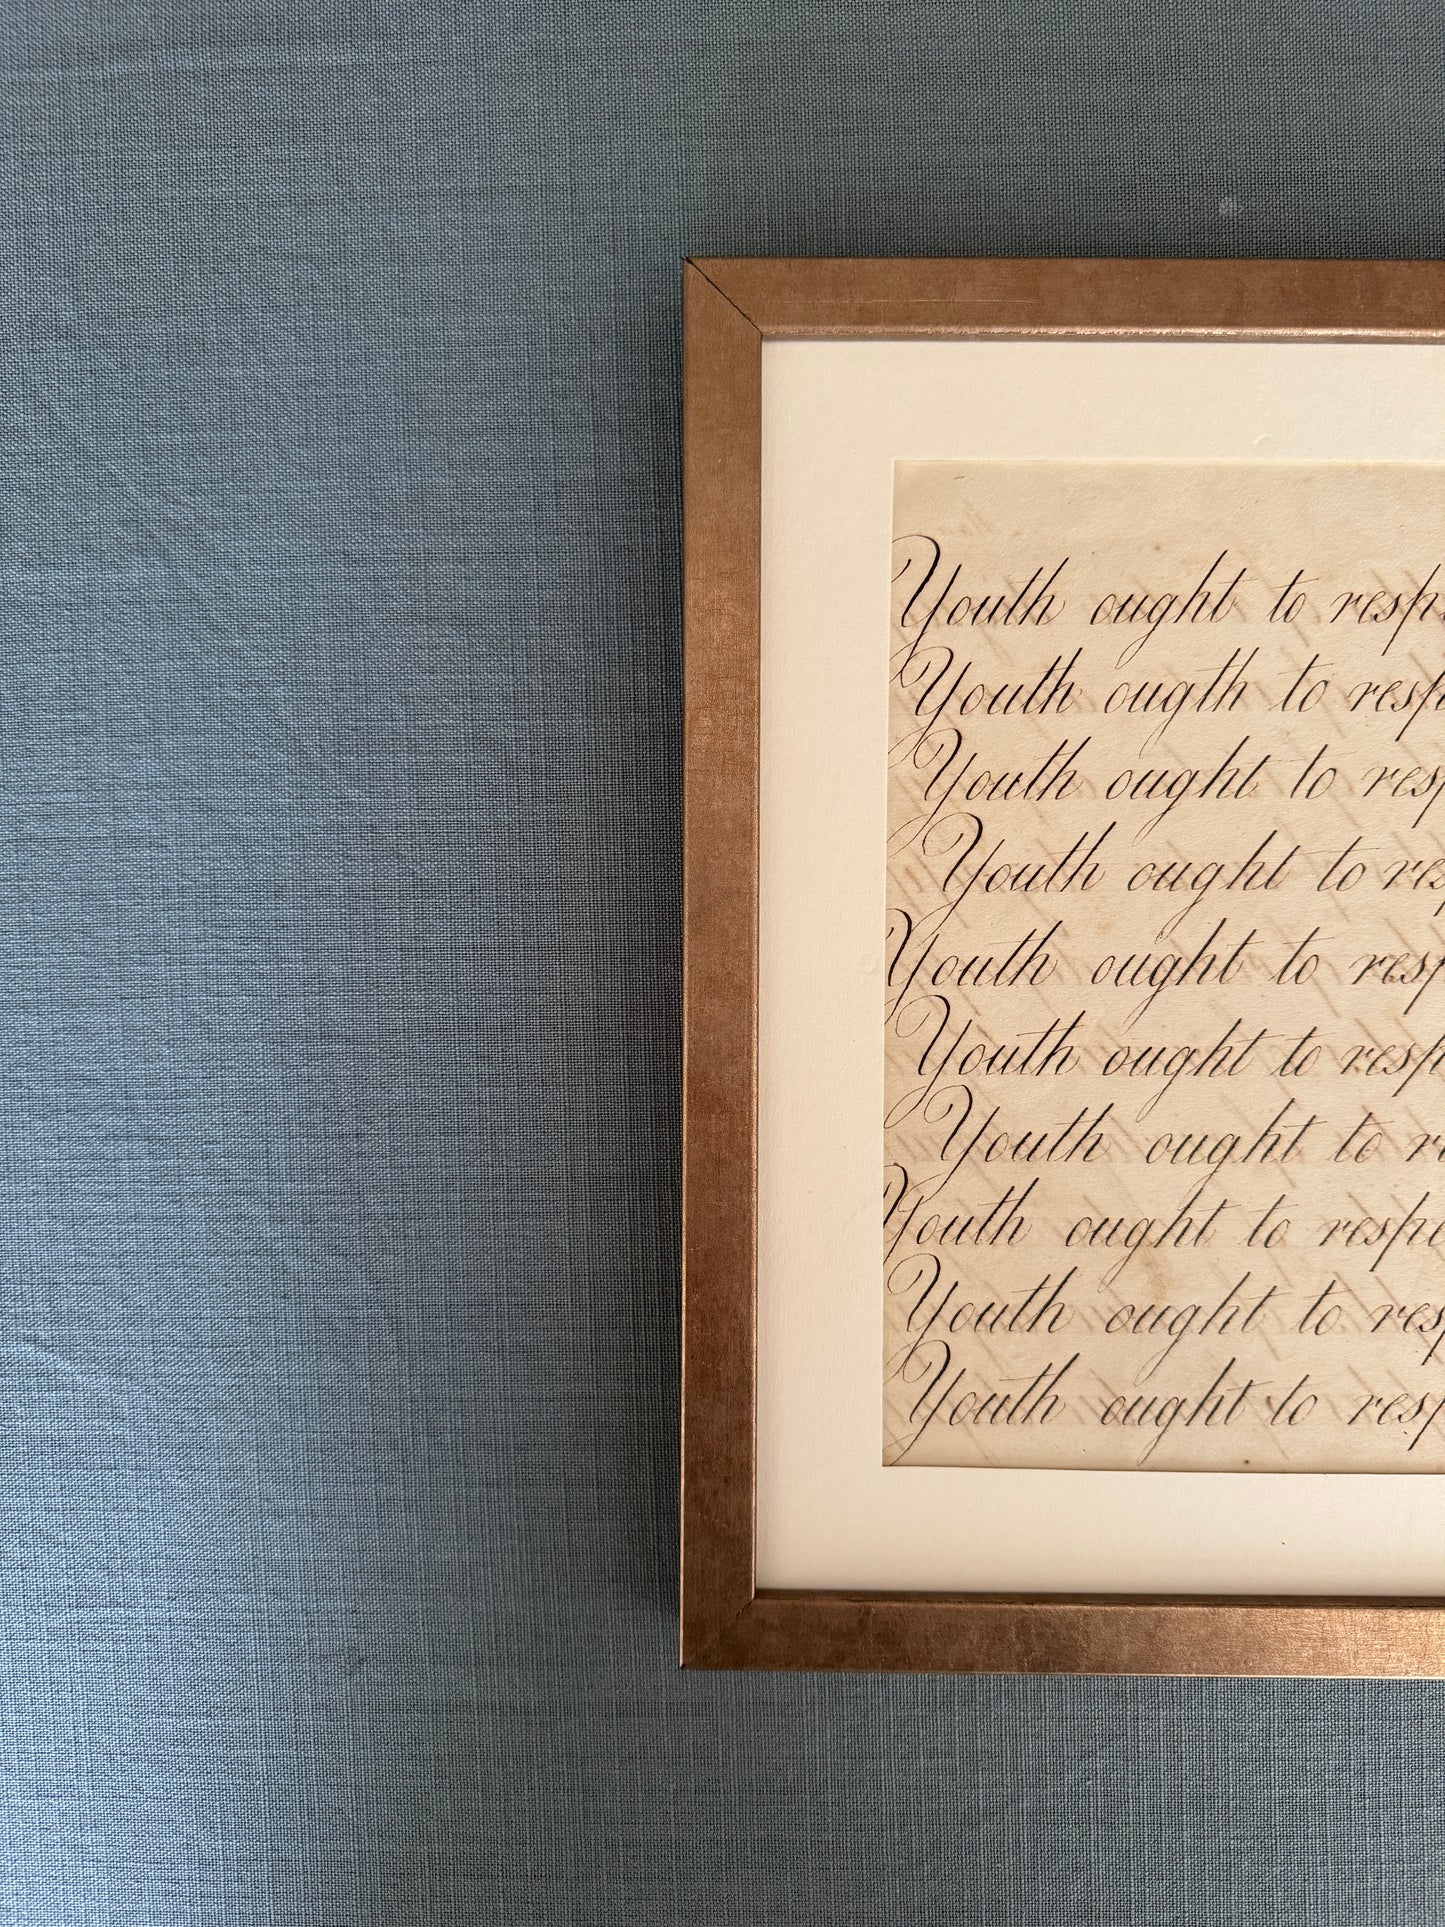 Youth ought to resp
Youth ougth to resp
Youth ought to resp
Youth ought to res
Youth ought to resp
Youth ought to resp
Youth ought to r
Youth ought to respe
Youth ought to resp
Youth ought to resp